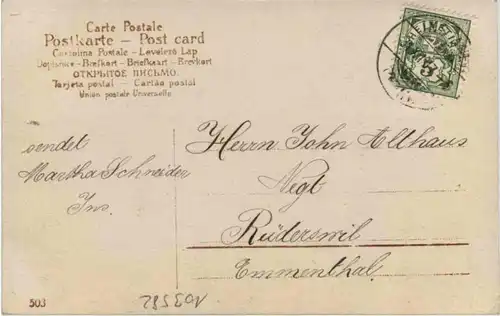 Carte Postale
Postkarte – Post card
Cartolina Postale – Levelező Lap
Dopisnice – Brefkort – Briefkaart – Brevkort
ОТКРЫТОЕ ПИСЬМО.
Tarjeta postal – Cartão postal
Union postale Universelle
5
sendet
Martha Schneider
Ins.
Herrn John Althaus
Negt
Rüderswil
Emmenthal.
503